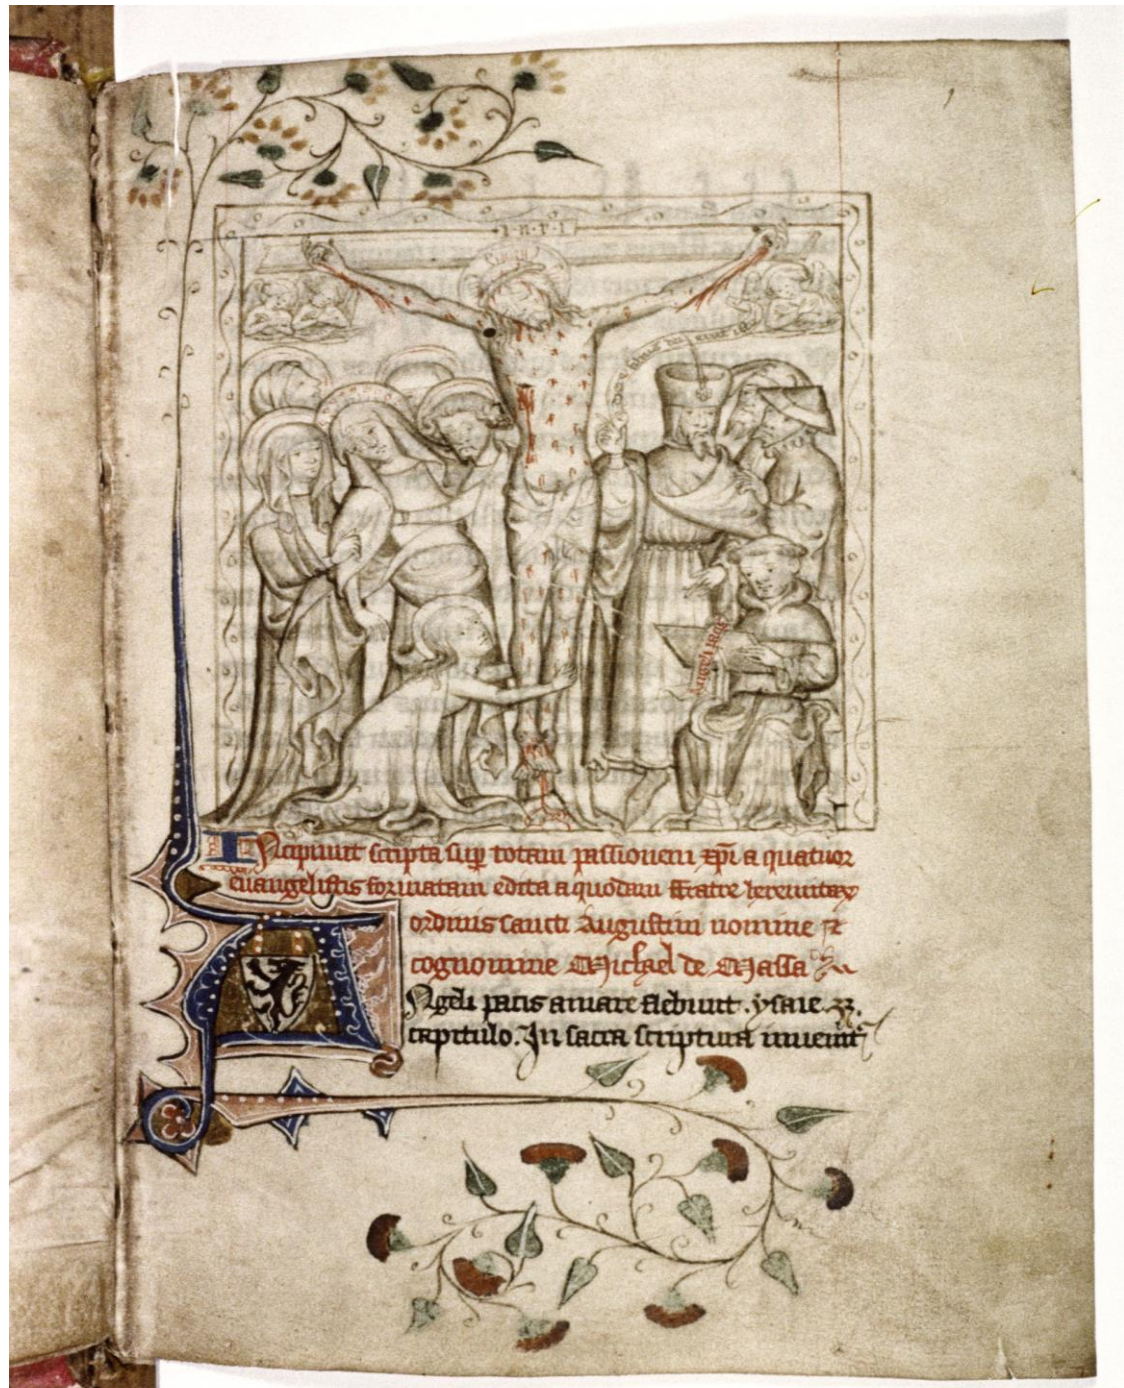 I·N·R·I
vere filius dei erat iste
Angeli pacis
INcipiunt scripta sup totam passionem xpi a quatuor
euangelistis formatam edita a quodam ffratre heremitax
ordinis sancti Augustini nomine et
cognomine Michael de Massa
ANgeli pacis amare flebunt. ysaie. 33.
capitulo. In sacra scriptura inuenit